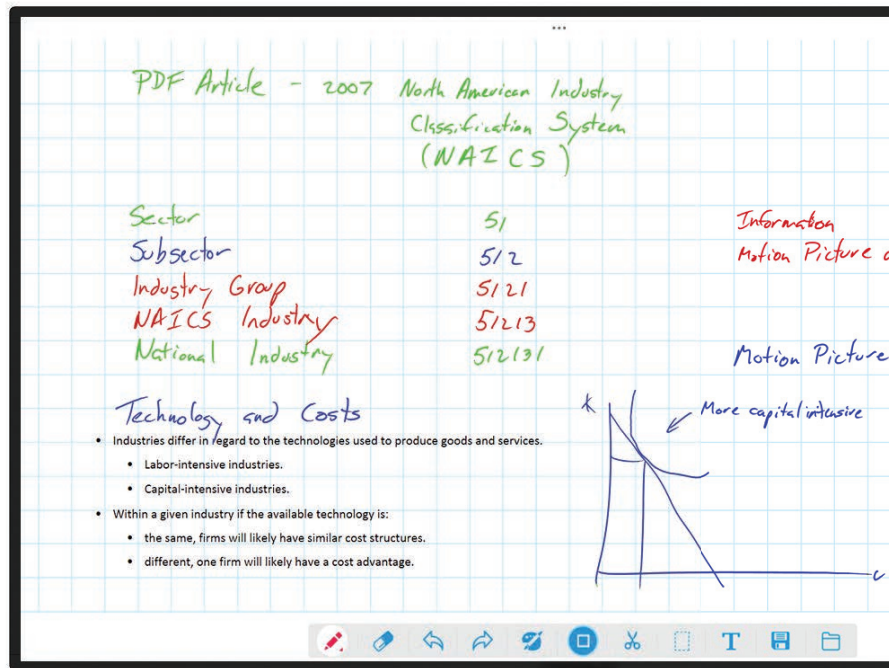 PDF Article - 2007 North American Industry
Classification System
(NAICS)
Sector 51 Information
Subsector 512 Motion Picture
Industry Group 5121
NAICS Industry 51213
National Industry 512131 Motion Picture
Technology and Costs
K
More capital intensive
• Industries differ in regard to the technologies used to produce goods and services.
• Labor-intensive industries.
• Capital-intensive industries.
• Within a given industry if the available technology is:
• the same, firms will likely have similar cost structures.
• different, one firm will likely have a cost advantage.
L
T